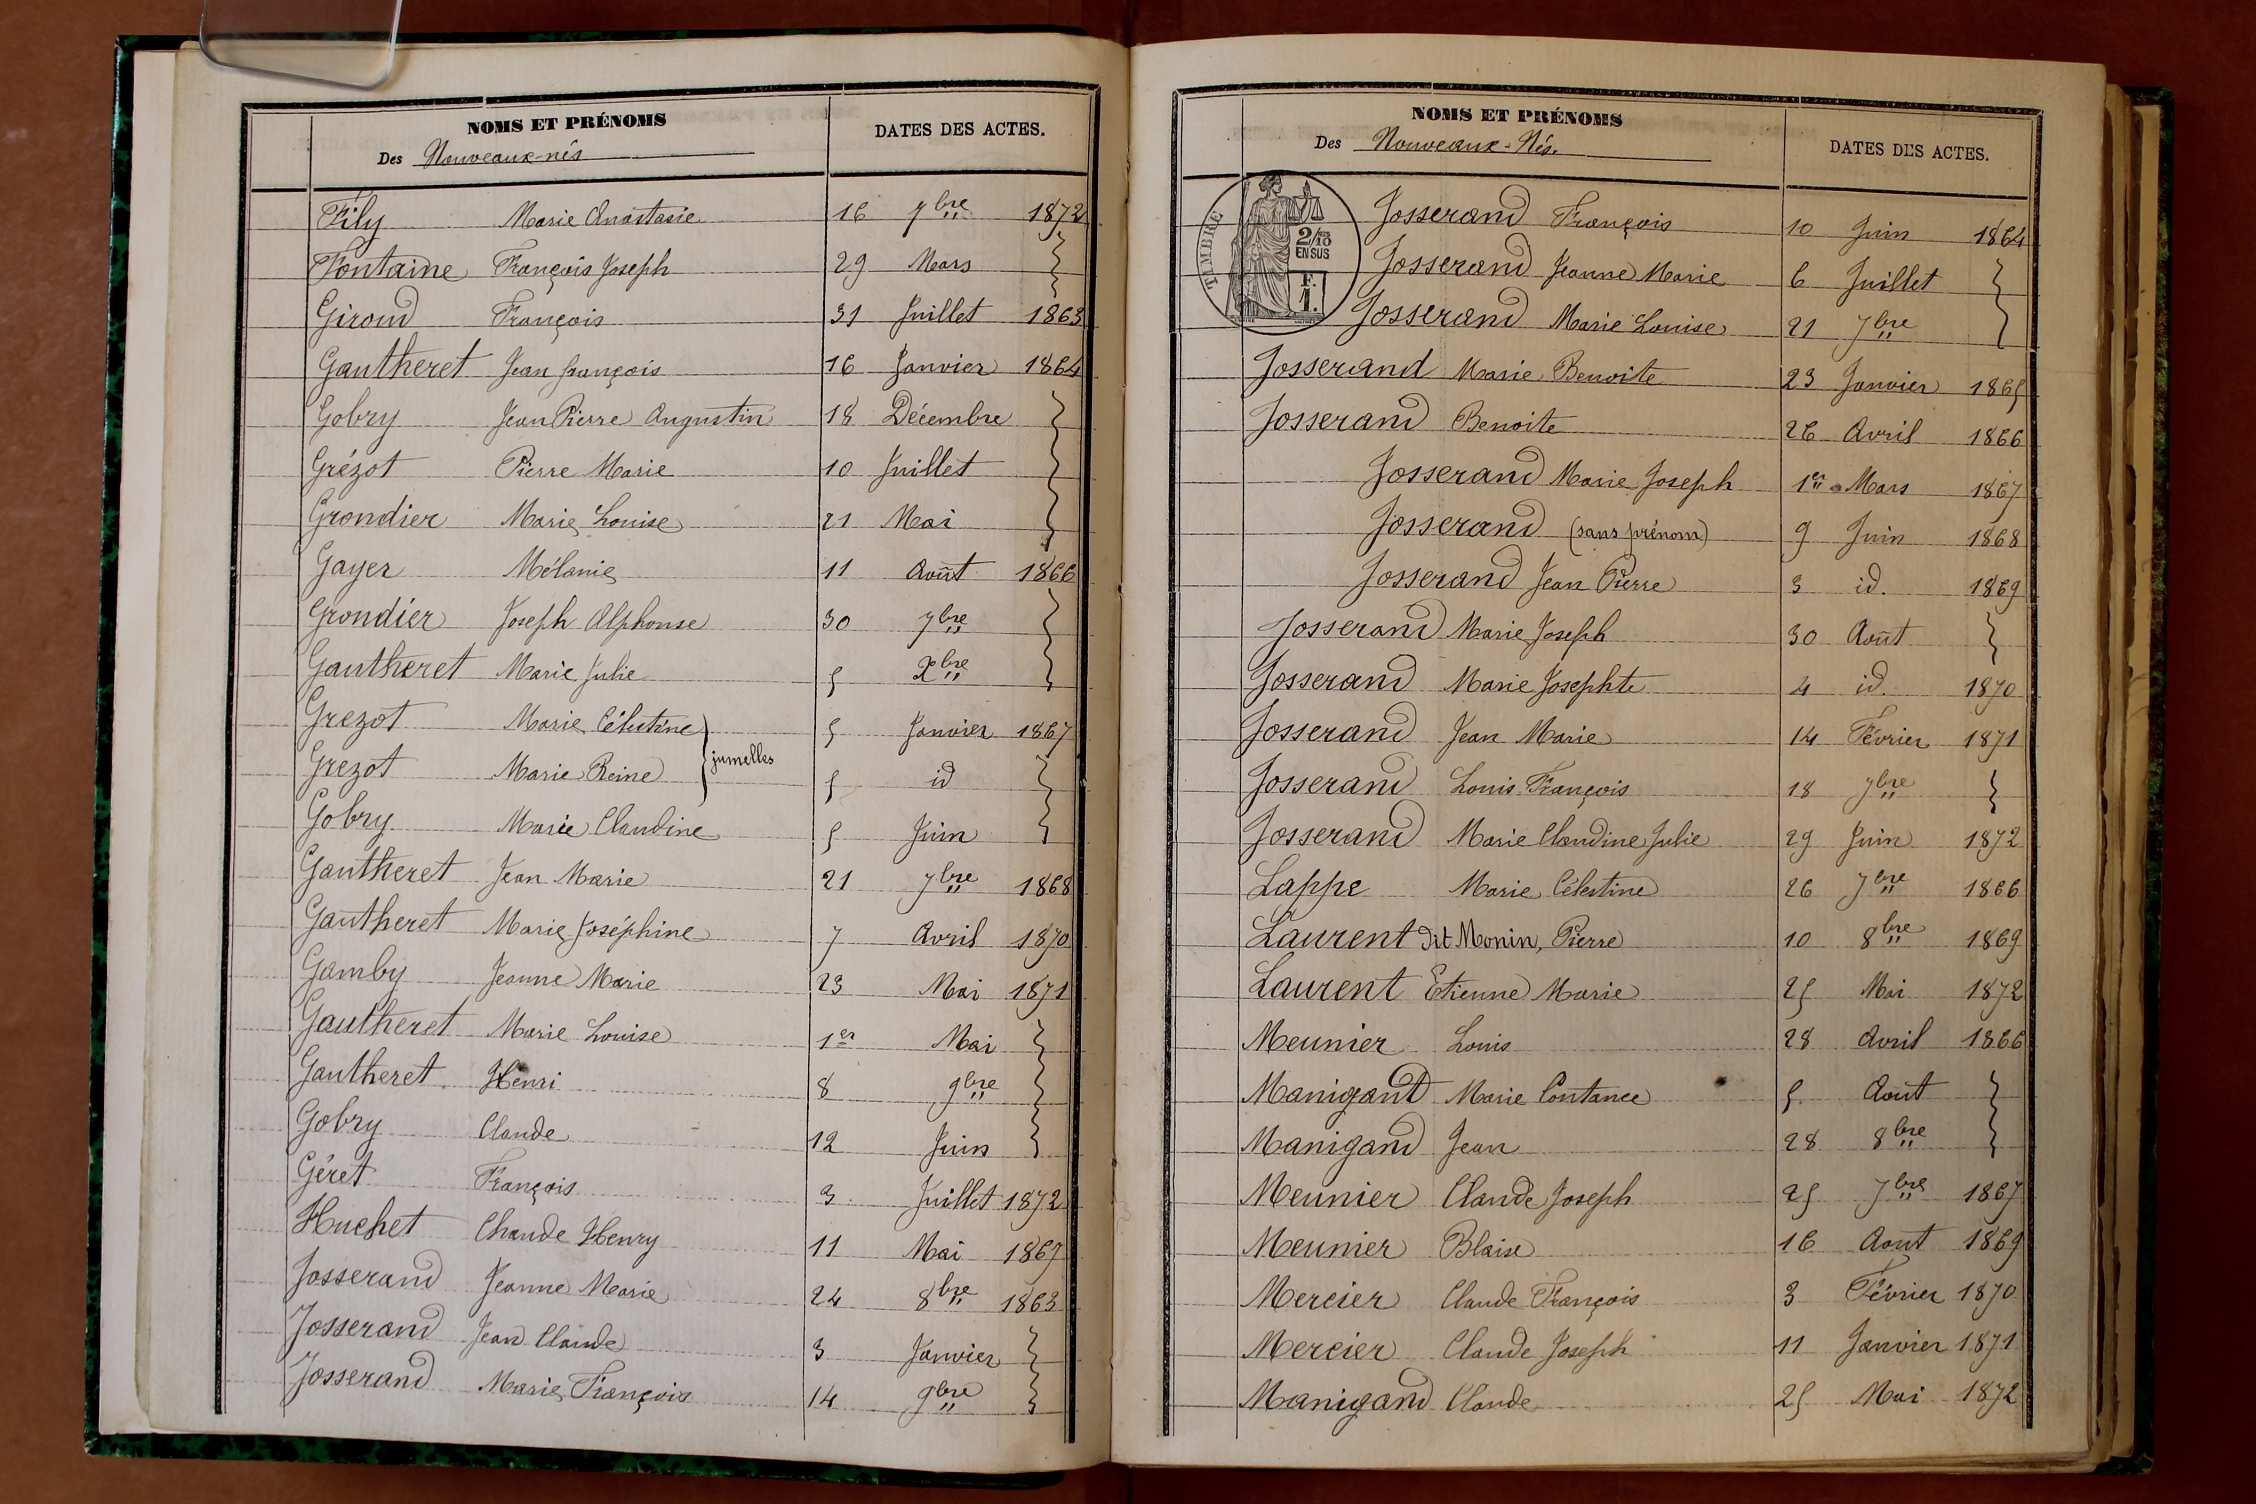 NOMS ET PRÉNOMS
Des Nouveaux-nés
DATES DES ACTES.
Fily Marie Anastasie 16 7bre 1872
Fontaine François Joseph 29 Mars }
Giroud François 31 Juillet 1863
Gautheret Jean françois 16 Janvier 1864
Gobry Jean Pierre Augustin 18 Décembre }
Grézot Pierre Marie 10 Juillet }
Grondier Marie Louise 21 Mai }
Gayer Mélanie 11 Août 1866
Grondier Joseph Alphonse 30 7bre }
Gautheret Marie Julie 5 Xbre }
Grezot Marie Célestine } jumelles 5 Janvier 1867
Grezot Marie Reine } 5 id }
Gobry Marie Claudine 5 Juin }
Gautheret Jean Marie 21 7bre 1868
Gautheret Marie Joséphine 7 Avril 1870
Gamby Jeanne Marie 23 Mai 1871
Gautheret Marie Louise 1er Mai }
Gautheret Henri 8 9bre }
Gobry Claude 12 Juin }
Géret François 3 Juillet 1872
Huchet Claude Henry 11 Mai 1867
Josserand Jeanne Marie 24 8bre 1863
Josserand Jean Claude 3 Janvier }
Josserand Marie François 14 9bre }
NOMS ET PRÉNOMS
Des Nouveaux-Nés.
DATES DES ACTES.
TIMBRE
2/10
EN SUS
F.
1.
Josserand François 10 Juin 1864
Josserand Jeanne Marie 6 Juillet }
Josserand Marie Louise 21 7bre }
Josserand Marie Benoite 23 Janvier 1865
Josserand Benoite 26 Avril 1866
Josserand Marie Joseph 1er Mars 1867
Josserand (sans prénom) 9 Juin 1868
Josserand Jean Pierre 3 id. 1869
Josserand Marie Joseph 30 Août }
Josserand Marie Josephte 4 id. 1870
Josserand Jean Marie 14 Février 1871
Josserand Louis François 18 7bre }
Josserand Marie Claudine Julie 29 Juin 1872
Lappe Marie Célestine 26 7bre 1866
Laurent dit Monin, Pierre 10 8bre 1869
Laurent Etienne Marie 25 Mai 1872
Meunier Louis 28 Avril 1866
Manigand Marie Contance 5 Août }
Manigand Jean 28 8bre }
Meunier Claude Joseph 25 7bre 1867
Meunier Blaise 16 Aout 1869
Mercier Claude François 3 Février 1870
Mercier Claude Joseph 11 Janvier 1871
Manigand Claude 25 Mai 1872